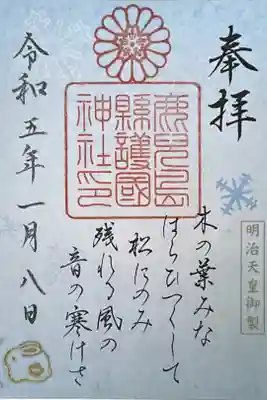 奉拝
鹿兒島
縣護國
神社印
明治天皇御製
木の葉みな
はらひつくして
松にのみ
残れる風の
音の寒けさ
令和五年一月八日